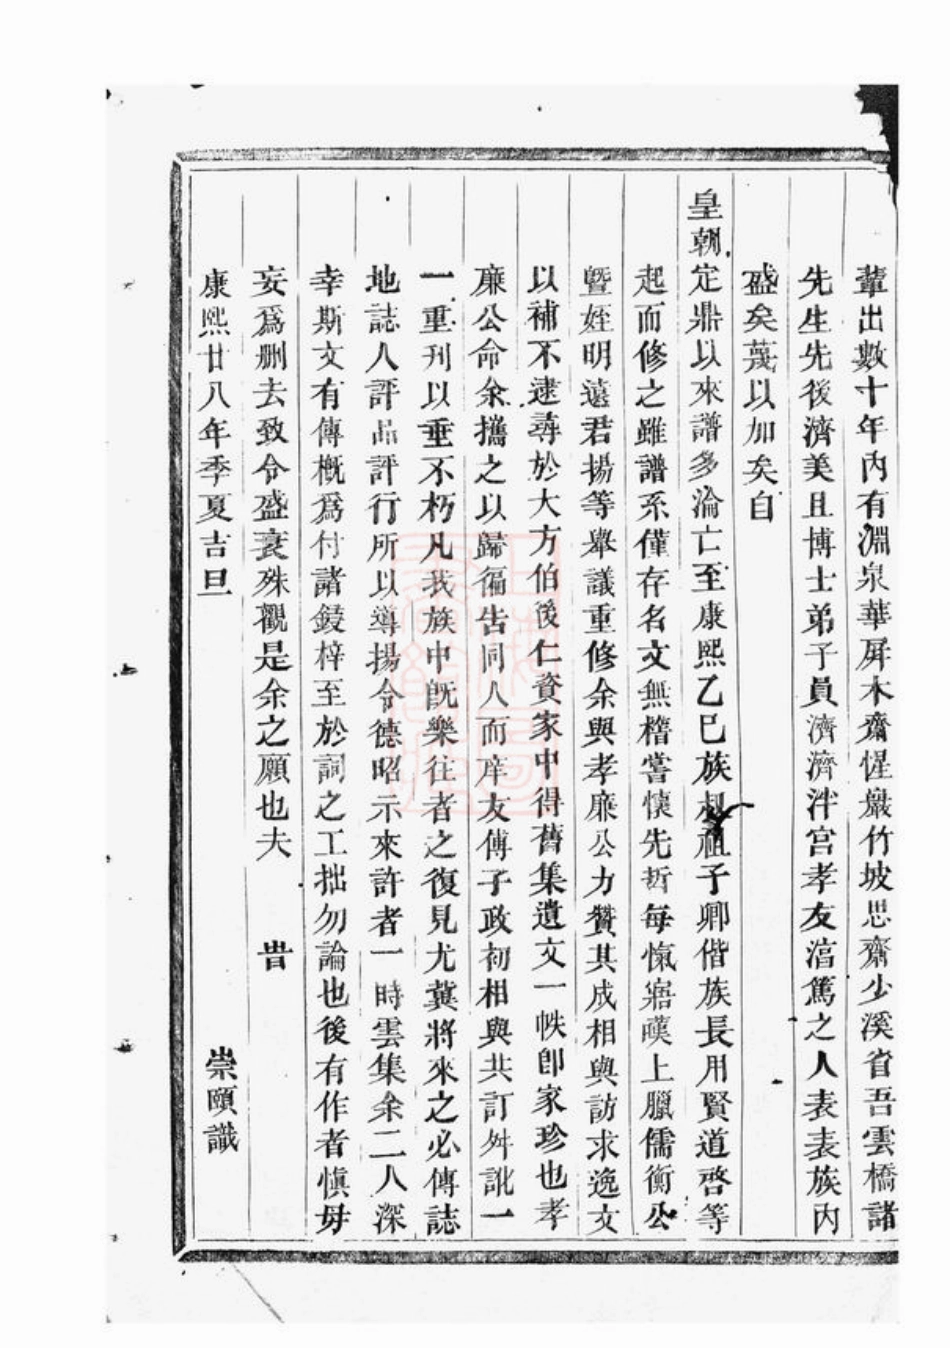 輩出數十年內有淵泉華屏木齋惺巖竹坡思齋少溪省吾雲橋諸
先生先後濟美且博士弟子員濟濟泮宮孝友滀篤之人表表族内
盛矣蔑以加矣自
皇朝定鼎以來譜多淪亡至康熙乙巳族叔祖子卿偕族長用賢道啓等
起而修之雖譜系僅存名文無稽嘗懐先哲每愾寤嘆上臘儒衡公
曁姪明遠君揚等舉議重修余與孝廉公力贊其成相與訪求逸文
以補不逮尋於大方伯後仁資家中得舊集遺文一帙卽家珍也孝
廉公命余攜之以歸徧告同人而庠友傅子政初相與共訂舛訛一
一重刋以垂不朽凡我族中旣樂往者之復見尤冀將來之必傳誌
地誌人評品評行所以導揚令德昭示來許者一時雲集余二人深
幸斯文有傳概爲付諸鋟梓至於詞之工拙勿論也後有作者愼毋
妄爲删去致令盛衰殊觀是余之願也夫 旹
康熙廿八年季夏吉旦 崇頤識